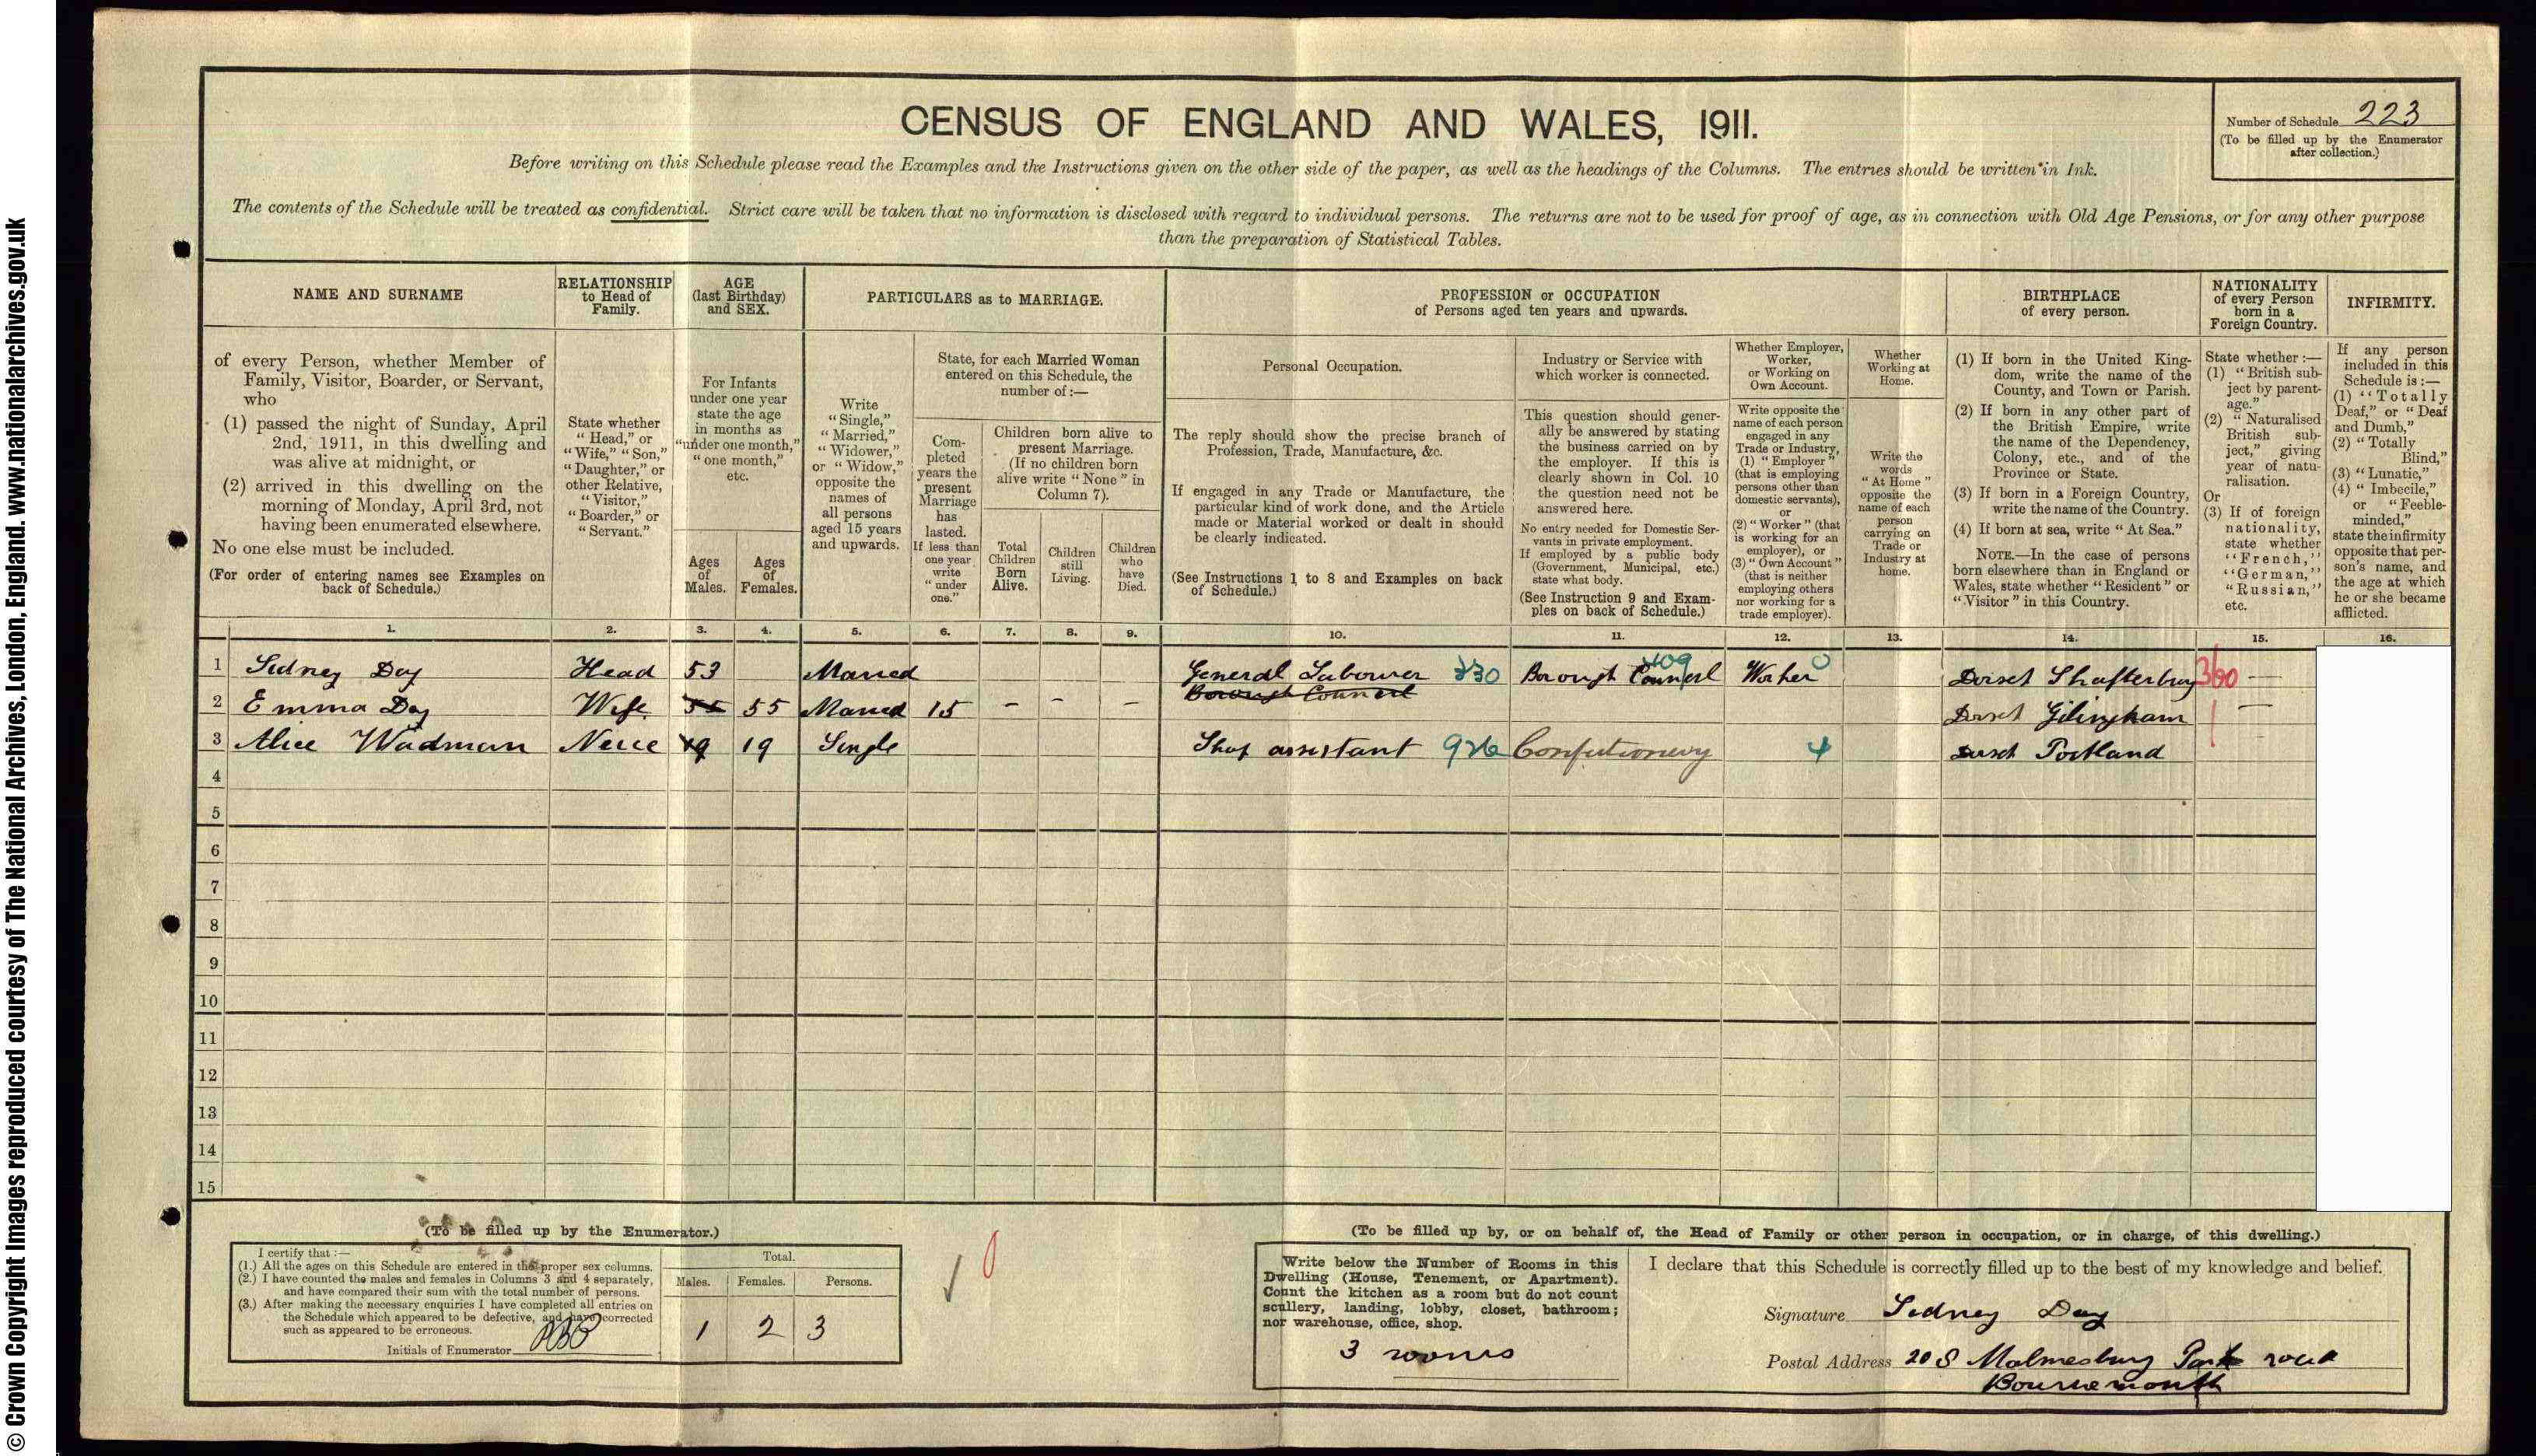 CENSUS OF ENGLAND AND WALES, 1911.
Number of Schedule 223
(To be filled up by the Enumerator
after collection.)
Before writing on this Schedule please read the Examples and the Instructions given on the other side of the paper, as well as the headings of the Columns. The entries should be written in Ink.
The contents of the Schedule will be treated as confidential. Strict care will be taken that no information is disclosed with regard to individual persons. The returns are not to be used for proof of age, as in connection with Old Age Pensions, or for any other purpose
than the preparation of Statistical Tables.
NAME AND SURNAME
of every Person, whether Member of
Family, Visitor, Boarder, or Servant,
who
(1) passed the night of Sunday, April
2nd, 1911, in this dwelling and
was alive at midnight, or
(2) arrived in this dwelling on the
morning of Monday, April 3rd, not
having been enumerated elsewhere.
No one else must be included.
(For order of entering names see Examples on
back of Schedule.)
RELATIONSHIP
to Head of
Family.
State whether
"Head," or
"Wife," "Son,"
"Daughter," or
other Relative,
"Visitor,"
"Boarder," or
"Servant."
AGE
(last Birthday)
and SEX.
For Infants
under one year
state the age
in months as
"under one month,"
"one month,"
etc.
Ages
of
Males.
Ages
of
Females.
PARTICULARS as to MARRIAGE.
Write
"Single,"
"Married,"
"Widower,"
or "Widow,"
opposite the
names of
all persons
aged 15 years
and upwards.
State, for each Married Woman
entered on this Schedule, the
number of:—
Com-
pleted
years the
present
Marriage
has
lasted.
If less than
one year
write
"under
one."
Children born alive to
present Marriage.
(If no children born
alive write "None" in
Column 7).
Total
Children
Born
Alive.
Children
still
Living.
Children
who
have
Died.
PROFESSION or OCCUPATION
of Persons aged ten years and upwards.
Personal Occupation.
The reply should show the precise branch of
Profession, Trade, Manufacture, &c.
If engaged in any Trade or Manufacture, the
particular kind of work done, and the Article
made or Material worked or dealt in should
be clearly indicated.
(See Instructions 1 to 8 and Examples on back
of Schedule.)
Industry or Service with
which worker is connected.
This question should gener-
ally be answered by stating
the business carried on by
the employer. If this is
clearly shown in Col. 10
the question need not be
answered here.
No entry needed for Domestic Ser-
vants in private employment.
If employed by a public body
(Government, Municipal, etc.)
state what body.
(See Instruction 9 and Exam-
ples on back of Schedule.)
Whether Employer,
Worker,
or Working on
Own Account.
Write opposite the
name of each person
engaged in any
Trade or Industry,
(1) "Employer"
(that is employing
persons other than
domestic servants),
or
(2) "Worker" (that
is working for an
employer), or
(3) "Own Account"
(that is neither
employing others
nor working for a
trade employer).
Whether
Working at
Home.
Write the
words
"At Home"
opposite the
name of each
person
carrying on
Trade or
Industry at
home.
BIRTHPLACE
of every person.
(1) If born in the United King-
dom, write the name of the
County, and Town or Parish.
(2) If born in any other part of
the British Empire, write
the name of the Dependency,
Colony, etc., and of the
Province or State.
(3) If born in a Foreign Country,
write the name of the Country.
(4) If born at sea, write "At Sea."
NOTE.—In the case of persons
born elsewhere than in England or
Wales, state whether "Resident" or
"Visitor" in this Country.
NATIONALITY
of every Person
born in a
Foreign Country.
State whether:—
(1) "British sub-
ject by parent-
age."
(2) "Naturalised
British sub-
ject," giving
year of natu-
ralisation.
Or
(3) If of foreign
nationality,
state whether
"French,"
"German,"
"Russian,"
etc.
INFIRMITY.
If any person
included in this
Schedule is:—
(1) "Totally
Deaf," or "Deaf
and Dumb,"
(2) "Totally
Blind,"
(3) "Lunatic,"
(4) "Imbecile,"
or "Feeble-
minded,"
state the infirmity
opposite that per-
son's name, and
the age at which
he or she became
afflicted.
1. 2. 3. 4. 5. 6. 7. 8. 9. 10. 11. 12. 13. 14. 15. 16.
1 Sidney Day Head 53 Married General Labourer Borough Council Worker 0 Dorset Shaftesbury 360 —
Borough Council
2 Emma Day Wife 55 55 Married 15 – – – Dorset Gilingham —
3 Alice Wadman Neice 19 19 Single Shop assistant 926 Confectionery 4 Dorset Portland
4
5
6
7
8
9
10
11
12
13
14
15
(To be filled up by the Enumerator.)
I certify that:—
(1.) All the ages on this Schedule are entered in the proper sex columns.
(2.) I have counted the males and females in Columns 3 and 4 separately,
and have compared their sum with the total number of persons.
(3.) After making the necessary enquiries I have completed all entries on
the Schedule which appeared to be defective, and have corrected
such as appeared to be erroneous.
Initials of Enumerator
Total.
Males. Females. Persons.
1 2 3
(To be filled up by, or on behalf of, the Head of Family or other person in occupation, or in charge, of this dwelling.)
Write below the Number of Rooms in this
Dwelling (House, Tenement, or Apartment).
Count the kitchen as a room but do not count
scullery, landing, lobby, closet, bathroom;
nor warehouse, office, shop.
3 rooms
I declare that this Schedule is correctly filled up to the best of my knowledge and belief.
Signature Sidney Day
Postal Address 208 Malmesbury Park road
Bournemouth
© Crown Copyright Images reproduced courtesy of The National Archives, London, England. www.nationalarchives.gov.uk